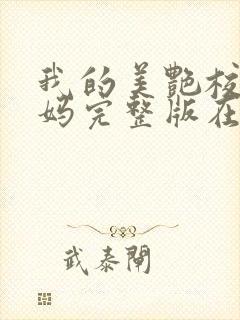 我的美艷校
妈完整版在
武泰閘